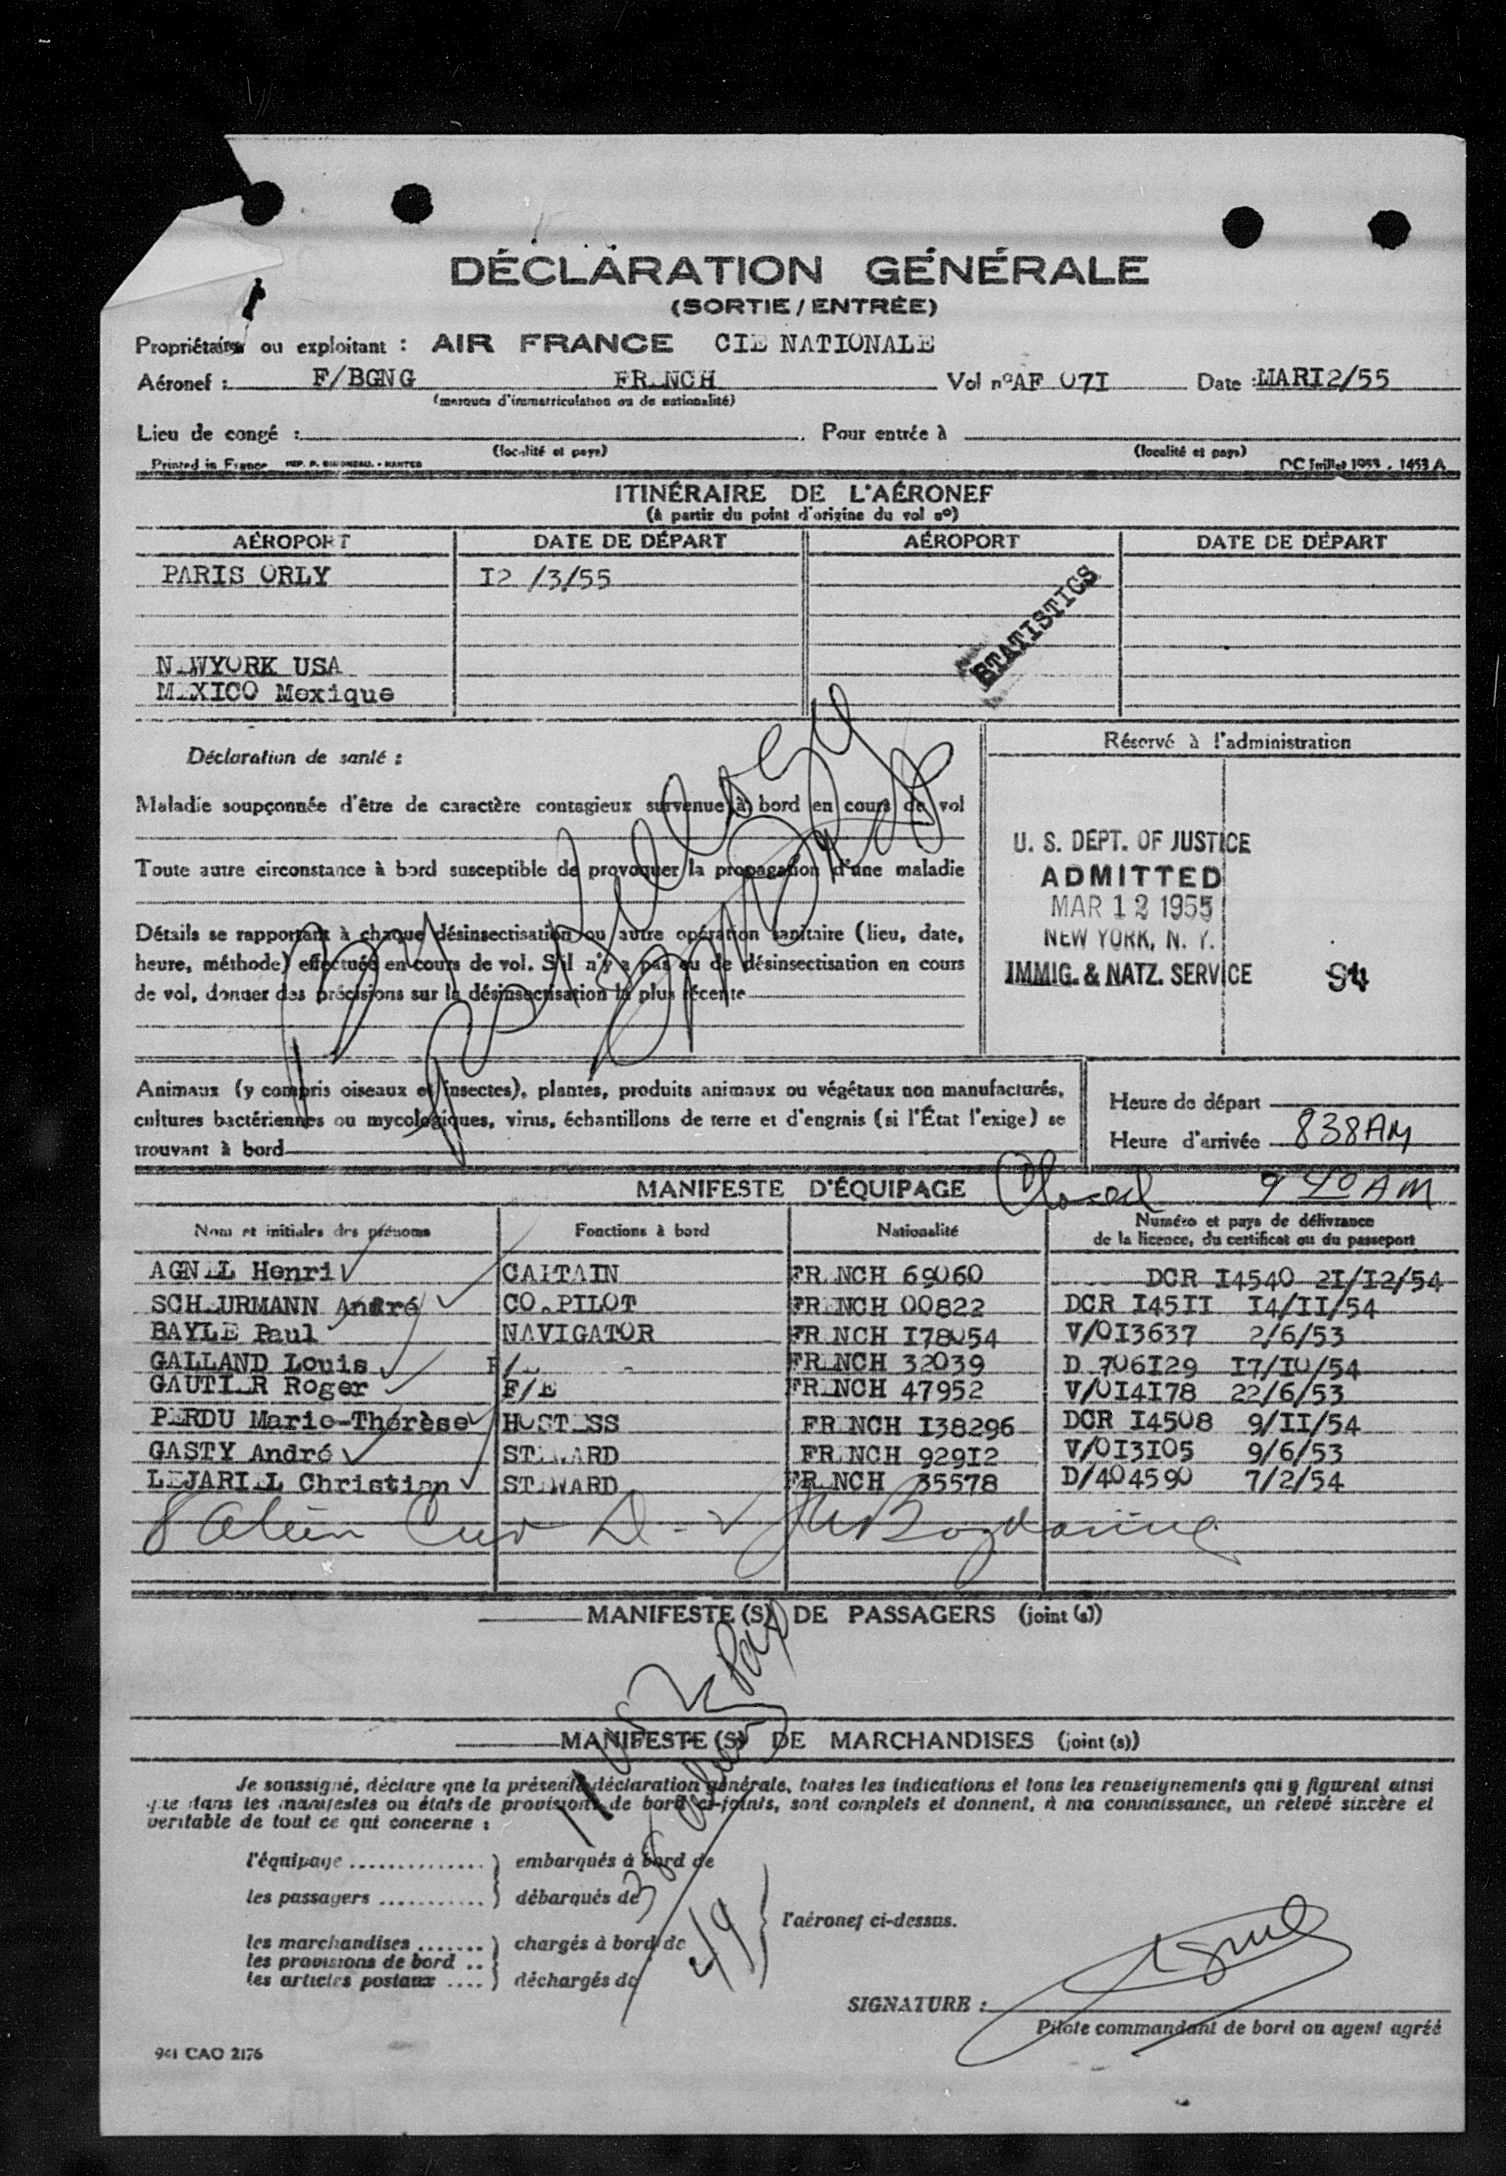 DÉCLARATION GÉNÉRALE
(SORTIE / ENTRÉE)
Propriétaire ou exploitant : AIR FRANCE CIE NATIONALE
Aéronef : F/BGNG FRENCH Vol nº AF 07I Date : MARI2/55
(marques d'immatriculation ou de nationalité)
Lieu de congé : Pour entrée à
(localité et pays) (localité et pays)
Printed in France IMP. P. NANTES DC Juillet 1953 . 1453 A
ITINÉRAIRE DE L'AÉRONEF
(à partir du point d'origine du vol nº)
AÉROPORT DATE DE DÉPART AÉROPORT DATE DE DÉPART
PARIS ORLY I2 /3/55
STATISTICS
NEWYORK USA
MEXICO Mexique
Déclaration de santé : Réservé à l'administration
Maladie soupçonnée d'être de caractère contagieux survenue à bord en cours de vol
Toute autre circonstance à bord susceptible de provoquer la propagation d'une maladie
Détails se rapportant à chaque désinsectisation ou autre opération sanitaire (lieu, date,
heure, méthode) effectuée en cours de vol. S'il n'y a pas eu de désinsectisation en cours
de vol, donner des précisions sur la désinsectisation la plus récente
U. S. DEPT. OF JUSTICE
ADMITTED
MAR 12 1955
NEW YORK, N. Y.
IMMIG. & NATZ. SERVICE 94
Animaux (y compris oiseaux et insectes), plantes, produits animaux ou végétaux non manufacturés,
cultures bactériennes ou mycologiques, virus, échantillons de terre et d'engrais (si l'État l'exige) se
trouvant à bord
Heure de départ
Heure d'arrivée 838AM
MANIFESTE D'ÉQUIPAGE Closed 9 40 AM
Nom et initiales des prénoms Fonctions à bord Nationalité Numéro et pays de délivrance
de la licence, du certificat ou du passeport
AGNEL Henri CAPTAIN FRENCH 69060 DCR I4540 2I/I2/54
SCHEURMANN André CO.PILOT FRENCH 00822 DCR I45II I4/II/54
BAYLE Paul NAVIGATOR FRENCH I78054 V/OI3637 2/6/53
GALLAND Louis FRENCH 32039 D 706I29 I7/IO/54
GAUTIER Roger F/E FRENCH 47952 V/OI4I78 22/6/53
PERDU Marie-Thérèse HOSTESS FRENCH I38296 DCR I4508 9/II/54
GASTY André STEWARD FRENCH 929I2 V/OI3I05 9/6/53
LEJARIEL Christian STEWARD FRENCH 35578 D/404590 7/2/54
8 Alien Crew D-
MANIFESTE(S) DE PASSAGERS (joint (s))
MANIFESTE(S) DE MARCHANDISES (joint (s))
Je soussigné, déclare que la présente déclaration générale, toutes les indications et tous les renseignements qui y figurent ainsi
que dans les manifestes ou états de provisions de bord ci-joints, sont complets et donnent, à ma connaissance, un relevé sincère et
véritable de tout ce qui concerne :
l'équipage .............. ) embarqués à bord de
les passagers ........... ) débarqués de
l'aéronef ci-dessus.
les marchandises ....... ) chargés à bord de
les provisions de bord ..
les articles postaux .... ) déchargés de
SIGNATURE :
Pilote commandant de bord ou agent agréé
941 CAO 2176